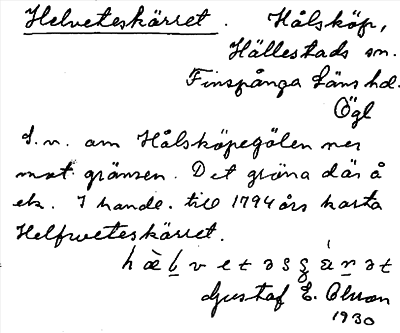 Helveteskärret. Hålsköp,
Hällestads sn.
Finspånga läns hd.
Ögl
S.v. om Hålsköpegölen ner
mot gränsen. Det gröna där å
ek. I handl. till 1794 års karta
Helfweteskärret.
Gustaf E. Olsson
1930